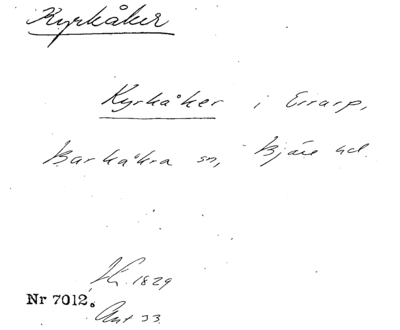 Kyrkåker
Kyrkåker i Errarp,
Barkåkra sn, Bjäre hd.
1829
Nr 7012.
Ant 33